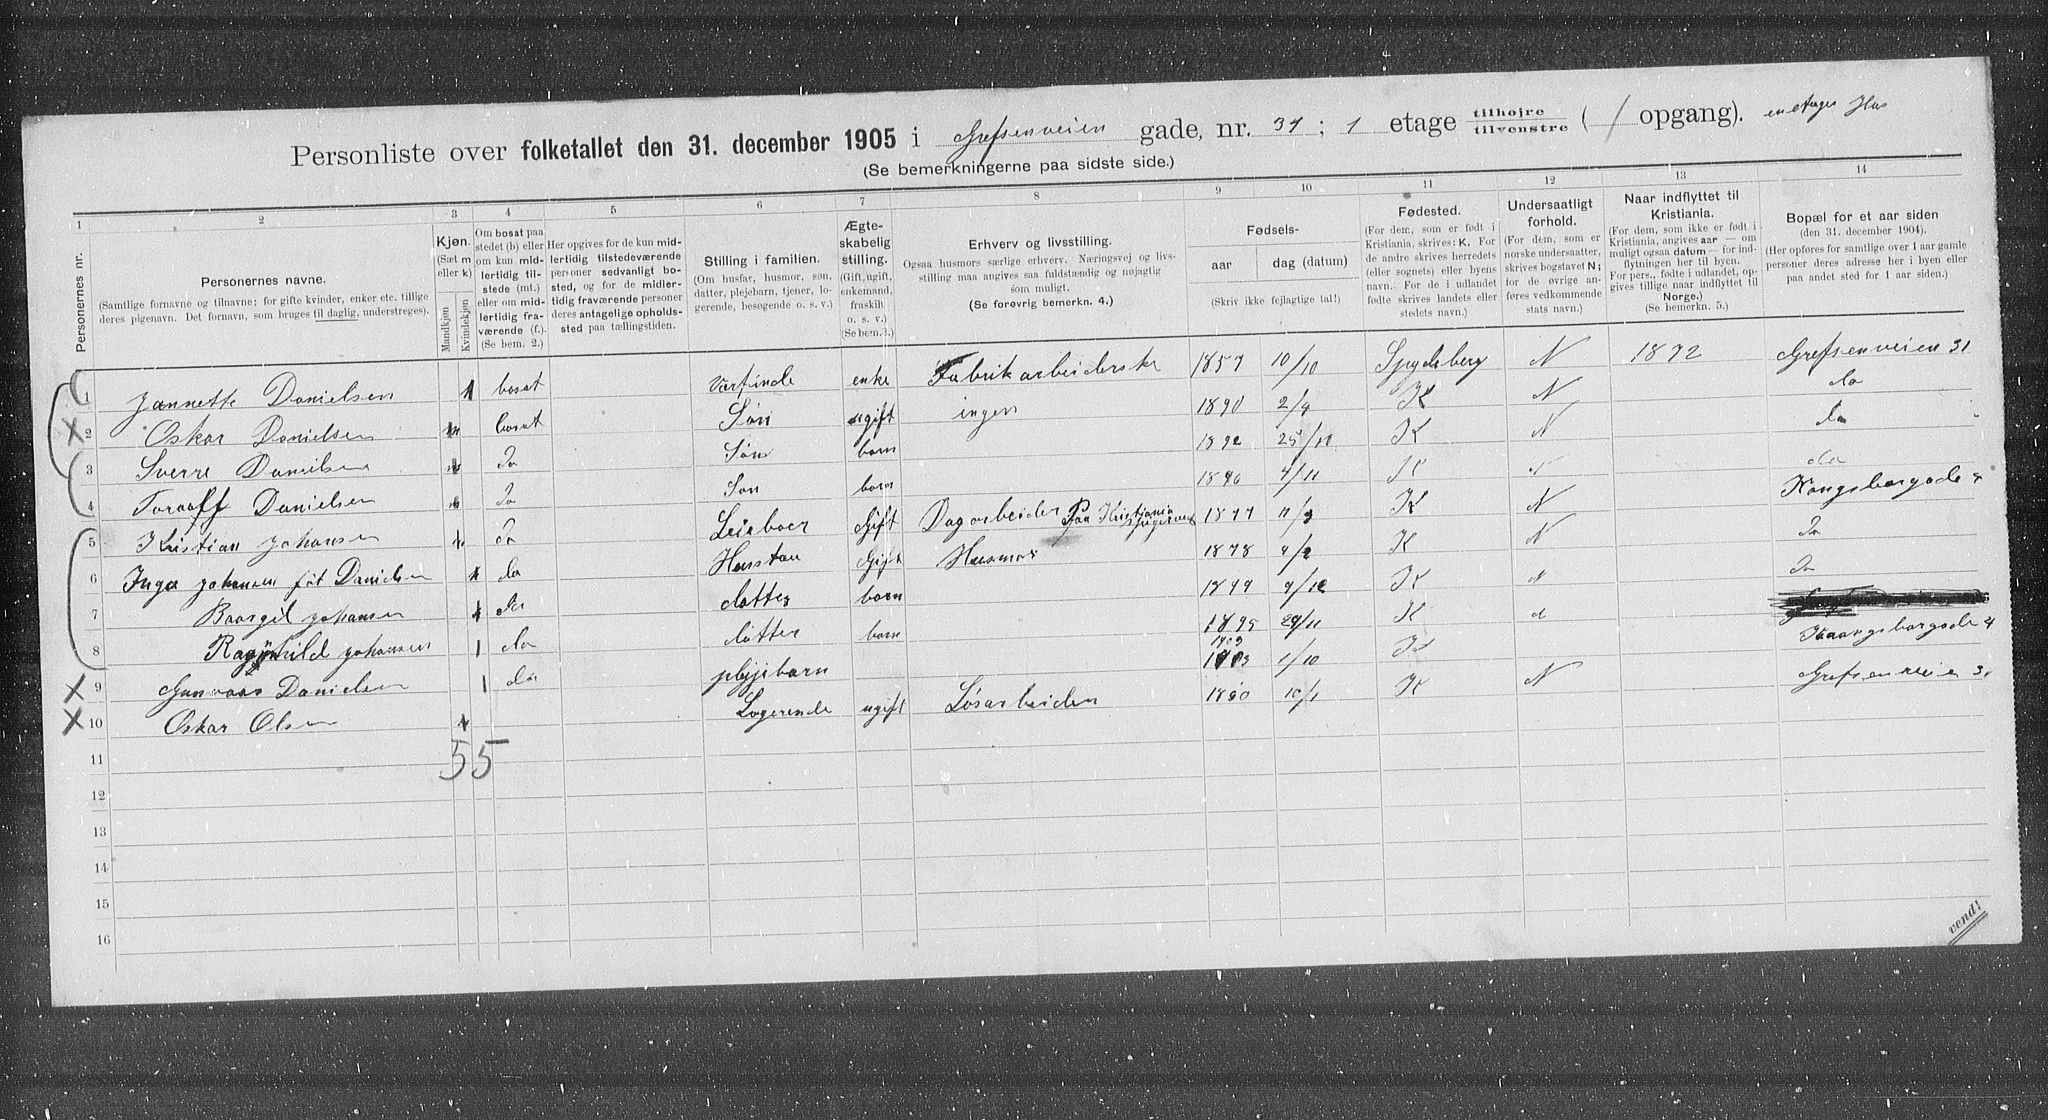 Personliste over folketallet den 31. december 1905 i Grefsenveien gade, nr. 31 ; 1 etage tilhøjre / tilvenstre ( / opgang). enetages Hus
(Se bemerkningerne paa sidste side.)
1 2 3 4 5 6 7 8 9 10 11 12 13 14
Personernes nr.
Personernes navne.
(Samtlige fornavne og tilnavne; for gifte kvinder, enker etc. tillige deres pigenavn. Det fornavn, som bruges til daglig, understreges).
Kjøn. (Sæt m eller k)
Mandkjøn
Kvindekjøn
Om bosat paa stedet (b) eller om kun midlertidig tilstede (mt.) eller om midlertidig fraværende (f.). (Se bem. 2.)
Her opgives for de kun midlertidig tilstedeværende personer sedvanligt bosted, og for de midlertidig fraværende personer deres antagelige opholdssted paa tællingstiden.
Stilling i familien.
(Om husfar, husmor, søn, datter, plejebarn, tjener, logerende, besøgende o. s. v.)
Ægteskabelig stilling. (Gift, ugift, enkemand, fraskilt o. s. v.) (Se bem. 3.)
Erhverv og livsstilling.
Ogsaa husmors særlige erhverv. Næringsvej og livsstilling maa angives saa fuldstændig og nøjagtig som muligt.
(Se forøvrig bemerkn. 4.)
Fødsels-
aar
dag (datum)
(Skriv ikke fejlagtige tal!)
Fødested.
(For dem, som er født i Kristiania, skrives: K. For de andre skrives herredets (eller sognets) eller byens navn. For de i udlandet fødte skrives landets eller stedets navn.)
Undersaatligt forhold.
(For dem, som er norske undersaatter, skrives bogstavet N; for de øvrige anføres vedkommende stats navn.)
Naar indflyttet til Kristiania.
(For dem, som ikke er født i Kristiania, angives aar — om muligt ogsaa datum — for indflytningen her til byen. For pers., fødte i udlandet, opgives tillige naar indflyttet til Norge.)
(Se bemerkn. 5.)
Bopæl for et aar siden
(den 31. december 1904).
(Her opføres for samtlige over 1 aar gamle personer deres adresse her i byen eller paa andet sted for 1 aar siden.)
1 Jannette Danielsen 1 bosat Værtinde enke Fabrikarbeiderske 1857 10/10 Spydeberg N 1872 Grefsenveien 31
2 Oskar Danielsen m bosat Søn ugift ingen 1890 2/4 K N do
3 Sverre Danielsen m Do Søn barn 1892 25/10 K N do
4 Toraaff Danielsen m Do Søn barn 4/11 K N do
5 Kristian Johansen Do Leieboer Gift Dagarbeider Paa Kristiania 1877 11/3 K N Kongsbergade 4
6 Inga Johansen føt Danielsen do Hustru Gift Husmor 1878 4/2 K N Do
7 Johansen do datter barn 1899 9/12 K N Do
8 Ragnhild Johansen 1 do datter barn 29/11 K Kaangsbergade 4
9 Danielsen 1 do plejebarn 1903 1/10 K N Grefsenveien 31
10 Oskar Olsen Logerende ugift Løsarbeider 10/1 K
55
11
12
13
14
15
16
vend!